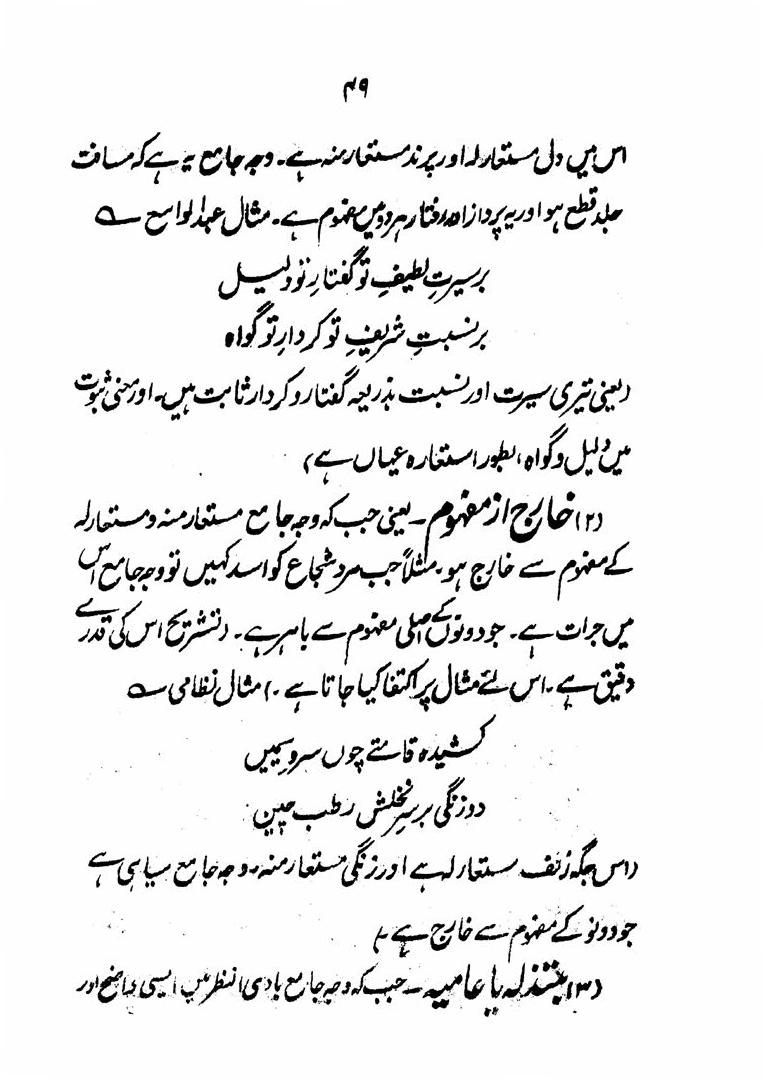 ۴۹
اس میں دل مستعار لہ اور پرند مستعار منہ ہے۔ وجہ جامع یہ ہے کہ مسافت
جلد قطع ہو اور یہ پرواز اور رفتار ہر دو میں مفہوم ہے۔ مثال عبدالواسع ؎
بر سیرتِ لطیفِ تو گفتارِ تو دلیل
بر نسبتِ شریفِ تو کردارِ تو گواہ
(یعنی تیری سیرت اور نسبت بذریعہ گفتار و کردار ثابت ہیں۔ اور معنی ثبوت
میں دلیل و گواہ، بطور استعارہ عیاں ہے)
(۲) خارج از مفہوم۔ یعنی جب کہ وجہ جامع مستعار منہ و مستعار لہ
کے مفہوم سے خارج ہو۔ مثلاً جب مرد شجاع کو اسد کہیں تو وجہ جامع اس
میں جرات ہے۔ جو دونوں کے اصلی مفہوم سے باہر ہے۔ (تشریح اس کی قدرے
دقیق ہے۔ اس لئے مثال پر اکتفا کیا جاتا ہے۔) مثال نظامی ؎
کشیدہ قامتے چوں سروِ سیمیں
دو زنگی بر سرِ نخلش رطب چین
(اس جگہ زلف مستعار لہ ہے اور زنگی مستعار منہ۔ وجہ جامع سیاہی ہے
جو دونو کے مفہوم سے خارج ہے۔)
(۳) مبتذلہ یا عامیہ۔ جب کہ وجہ جامع بادی النظر میں ایسی واضح اور